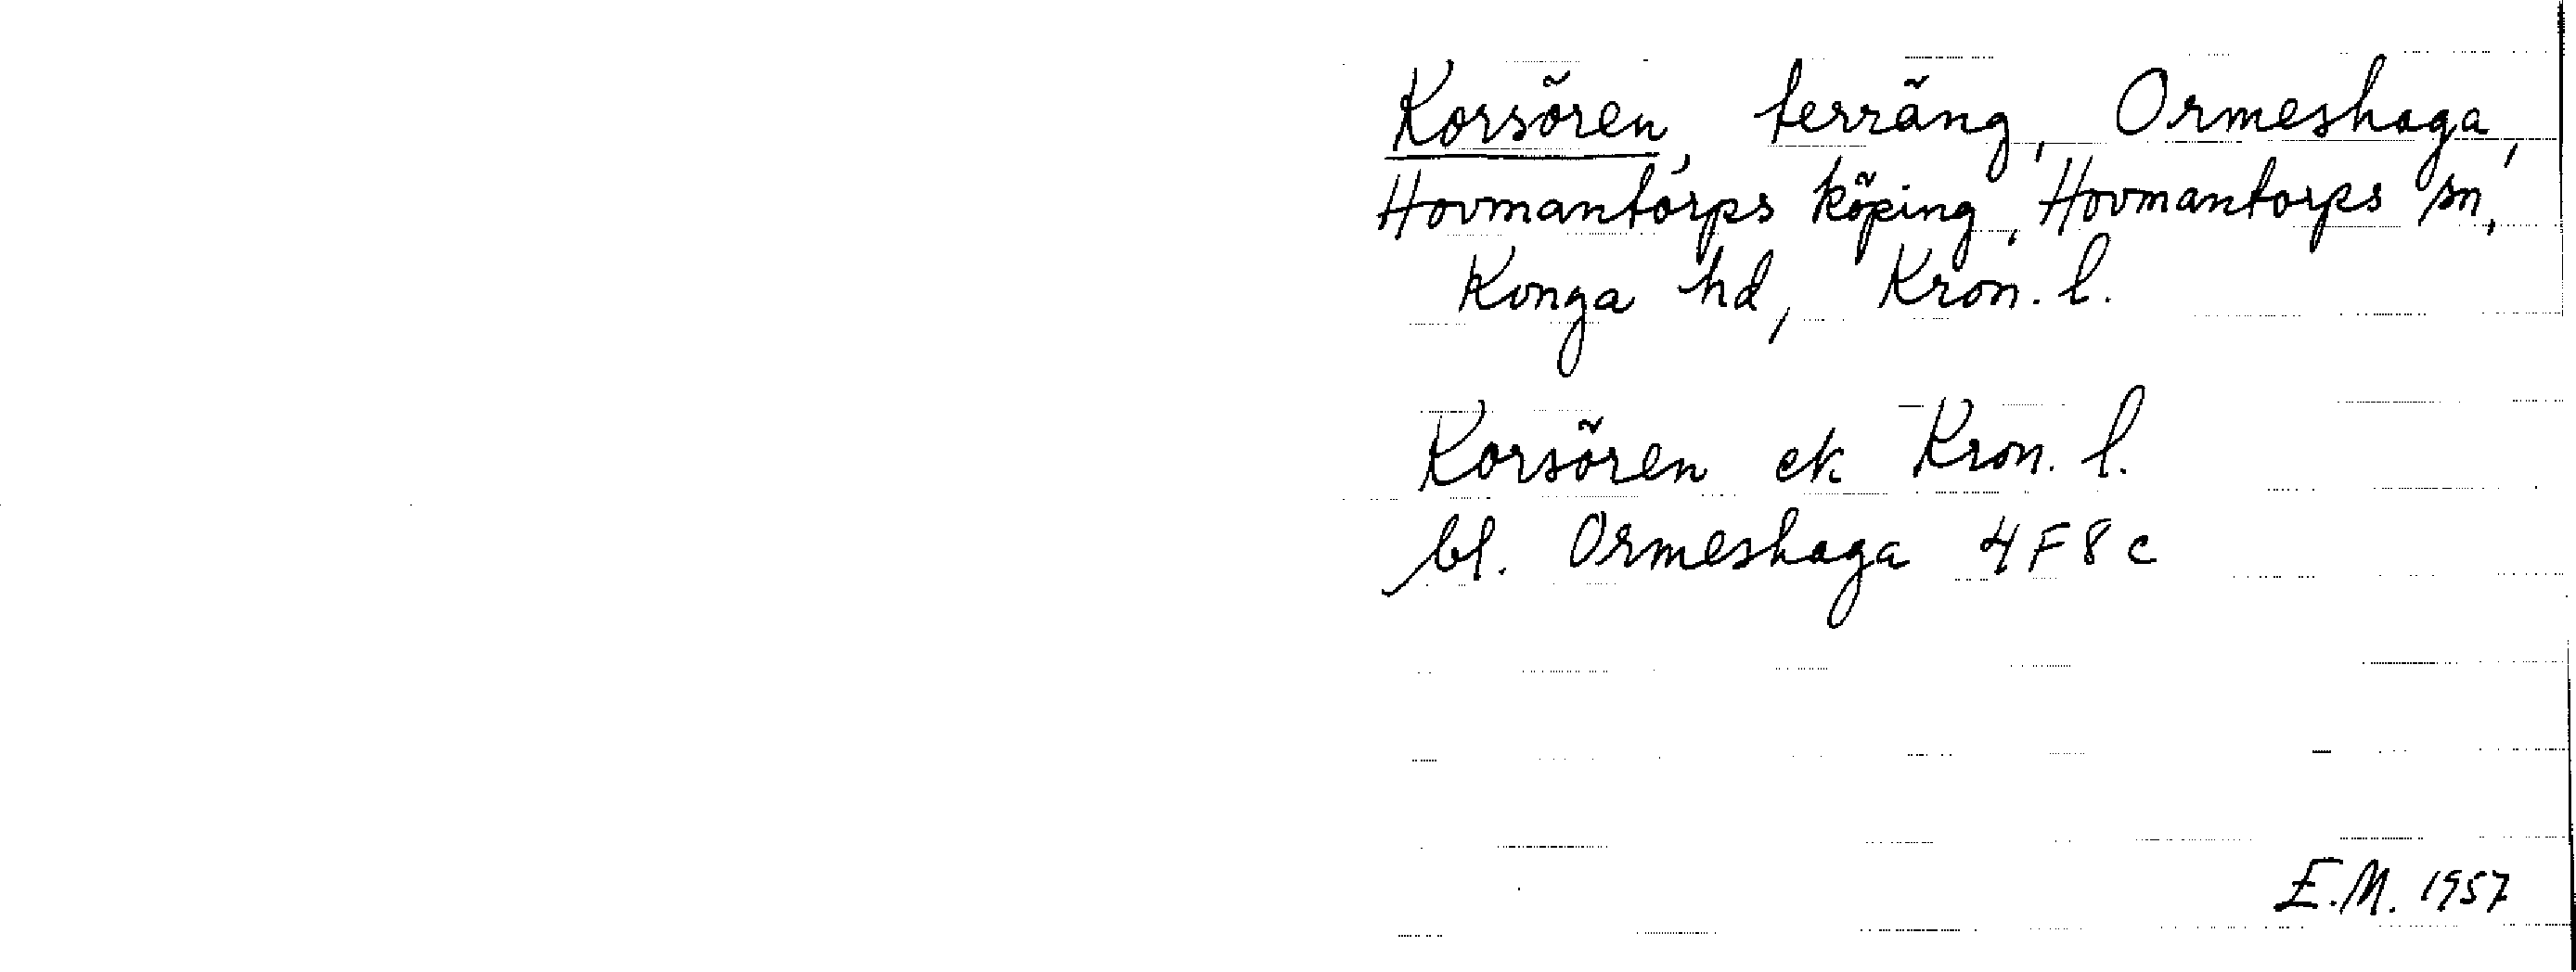 Korsören, terräng, Ormeshaga,
Hovmantorps köping, Hovmantorps sn,
Konga hd, Kron. l.
Korsören ek Kron. l.
bl. Ormeshaga 4F8c
E.M. 1957